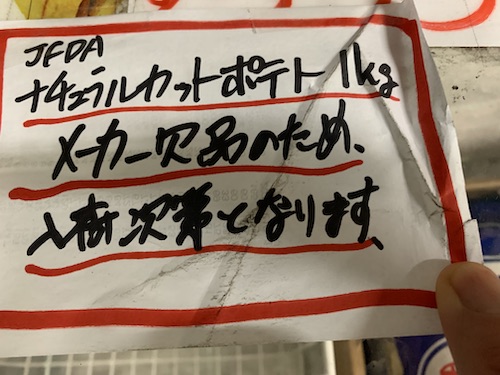 JFDA
ナチュラルカットポテト 1kg
メーカー欠品のため、
入荷次第となります、